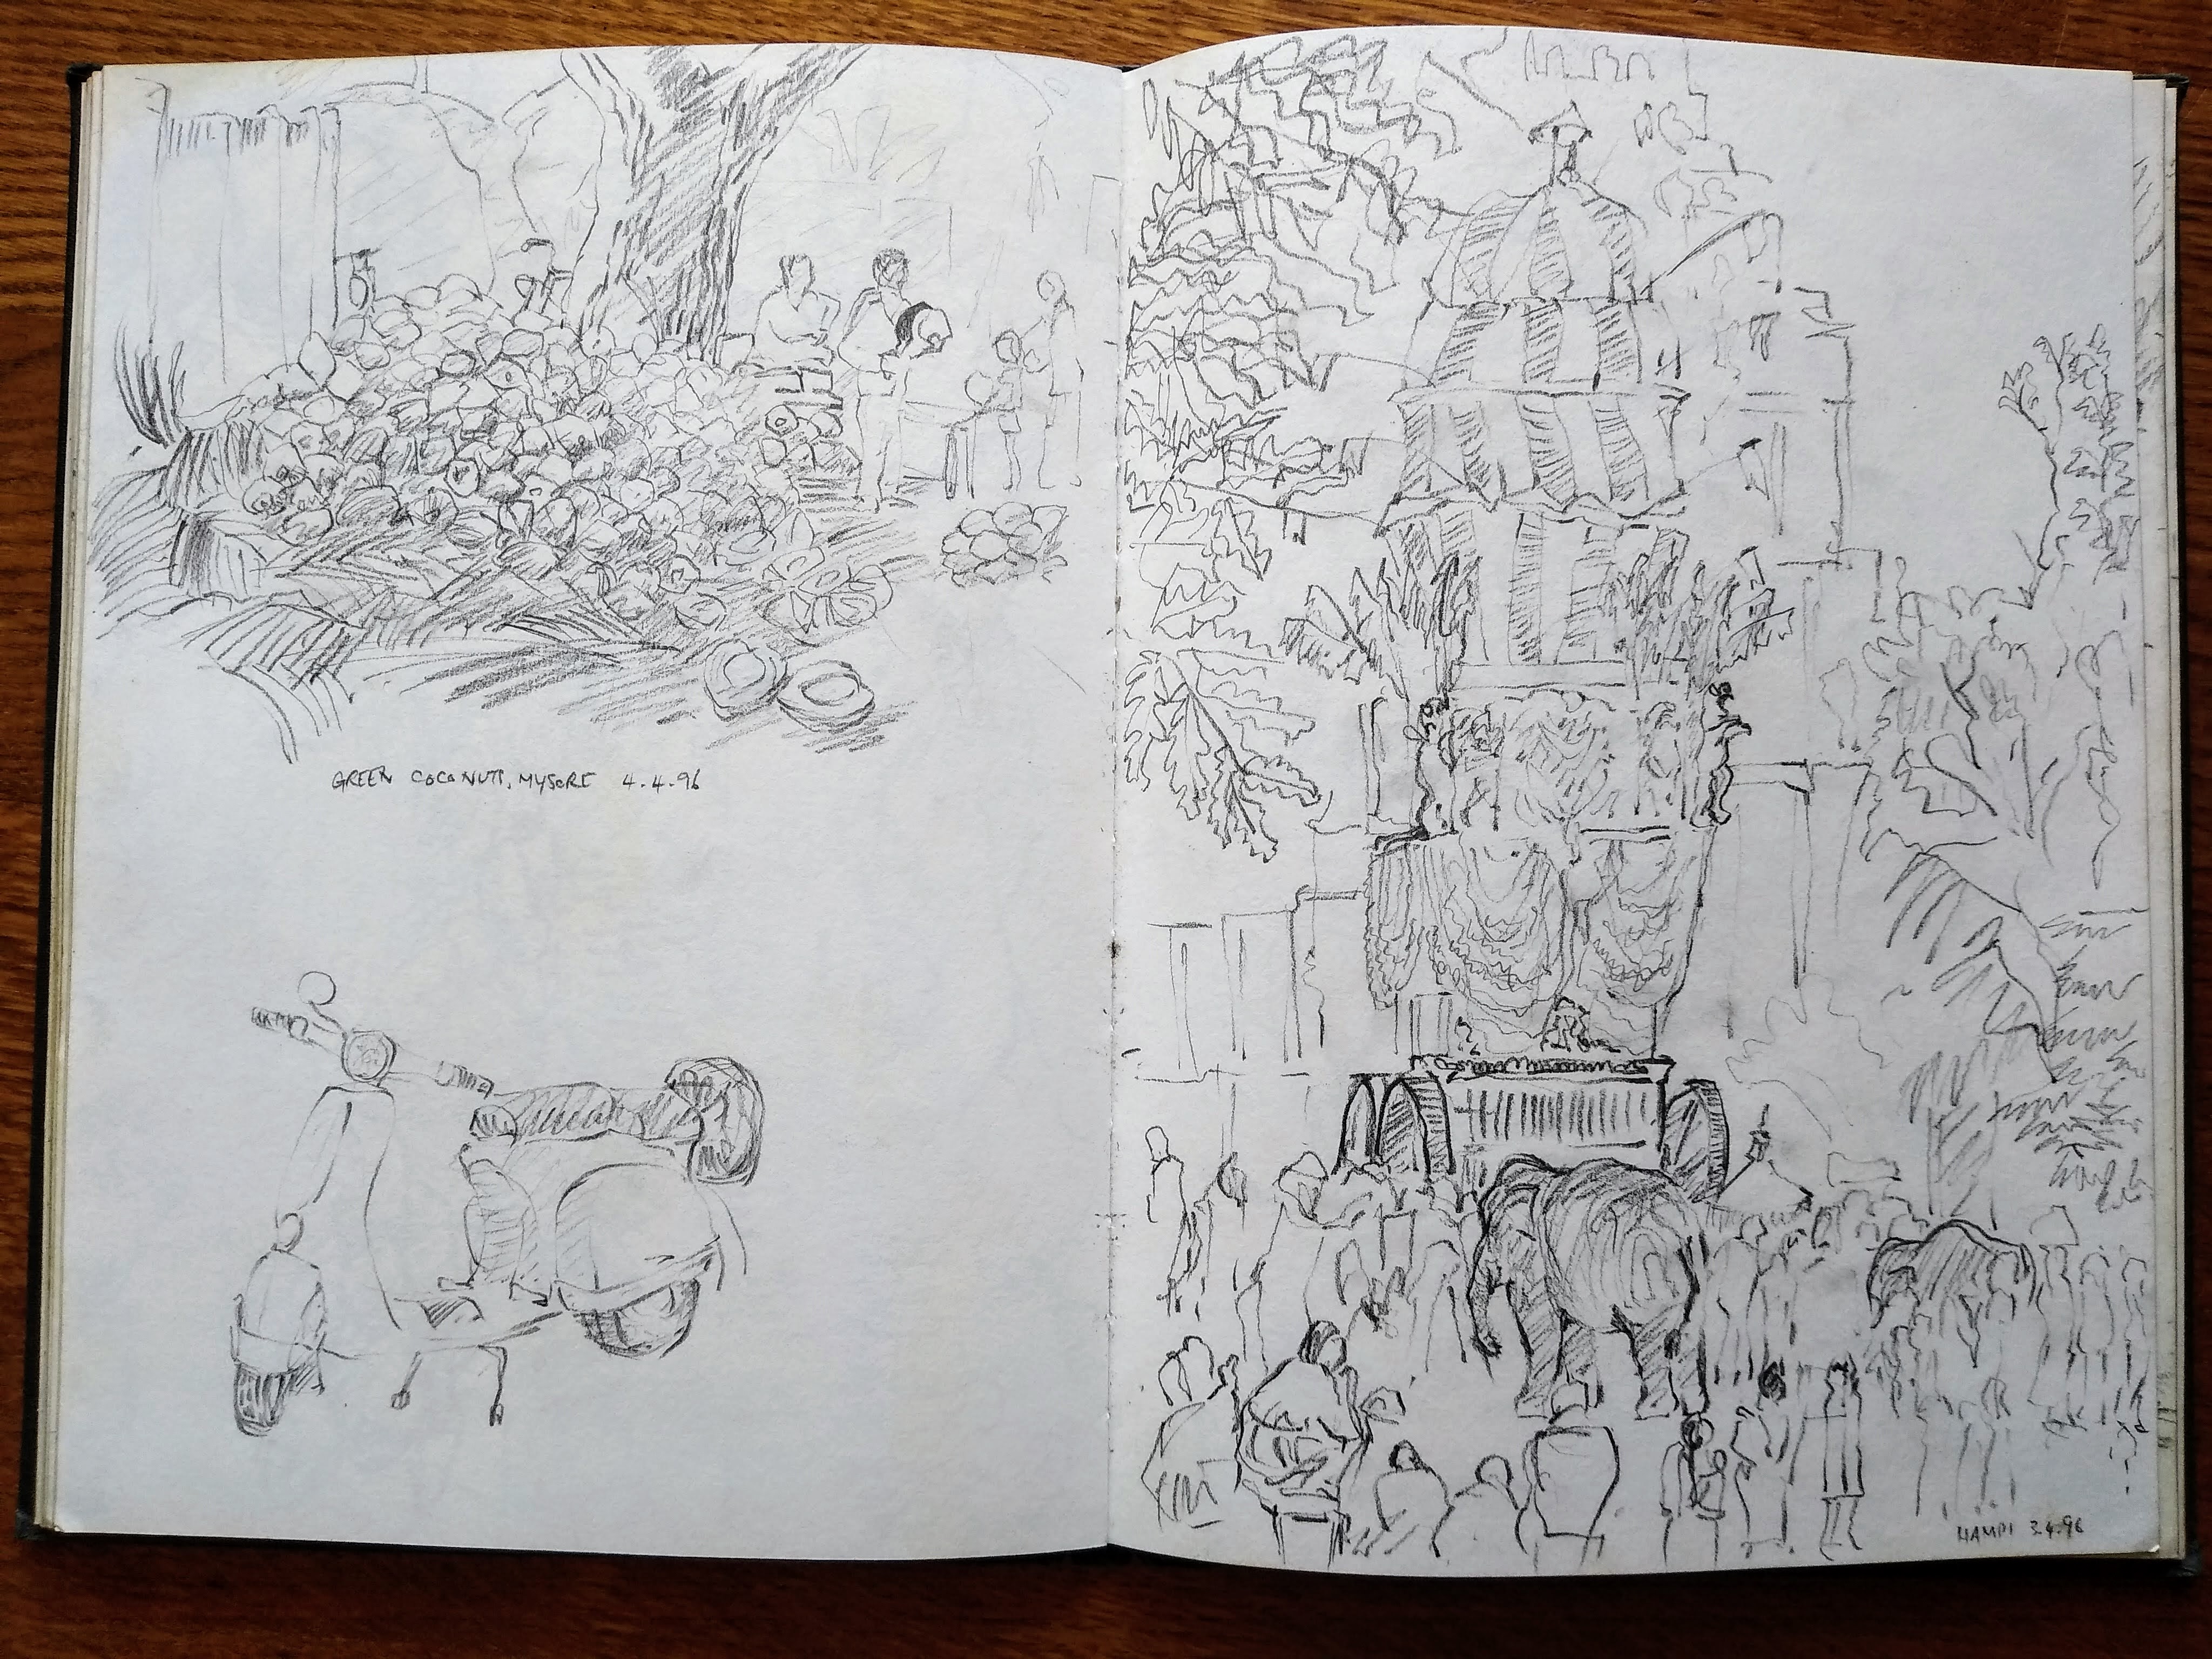 GREEN COCONUTS, MYSORE 4.4.96
HAMPI 3.4.96